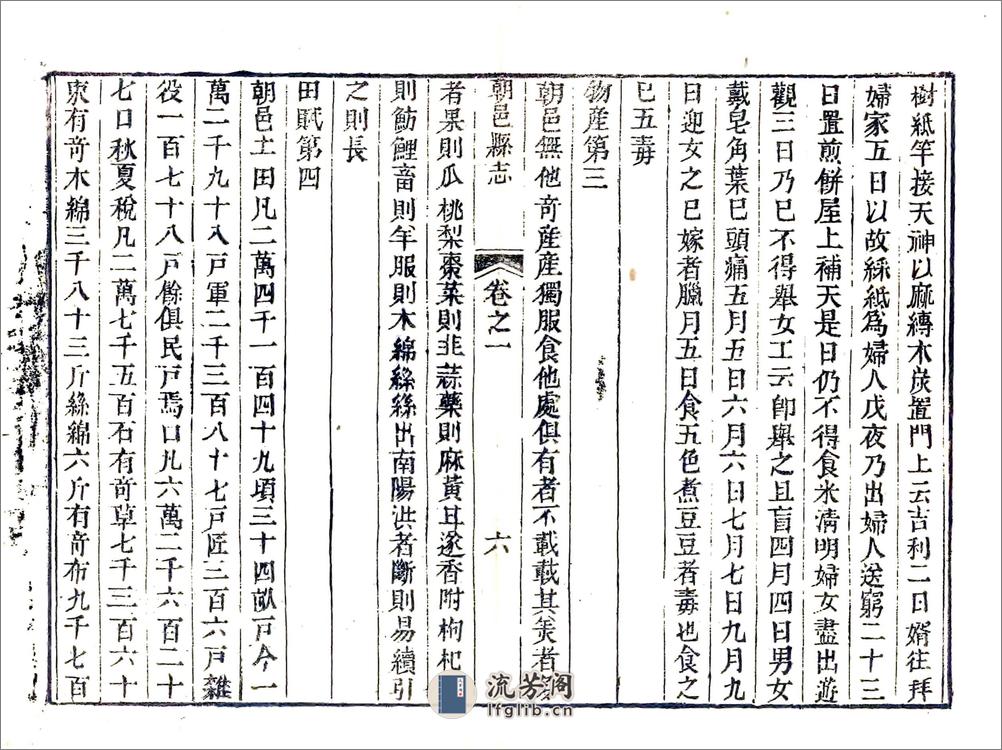 樹紙竿接天神以麻縛木炭置門上云吉利二日婿往拜
婦家五日以故綵紙爲婦人戊夜乃出婦人送窮二十三
日置煎餅屋上補天是日仍不得食米清明婦女盡出遊
觀三日乃已不得舉女工云卽舉之且盲四月四日男女
戴皂角葉已頭痛五月五日六月六日七月七日九月九
日迎女之已嫁者臘月五日食五色煮豆豆者毒也食之
已五毒
物産第三
朝邑無他奇産産獨服食他處俱有者不載載其羙者
朝邑縣志
卷之一
六
者果則瓜桃梨棗菜則韭蒜藥則麻黄苴遂香附枸杞
則魴鯉畜則羊服則木綿絲絲出南陽洪者斷則易續引
之則長
田賦第四
朝邑土田凡二萬四千一百四十九頃三十四畝戸今一
萬二千九十八戸軍二千三百八十七戸匠三百六戸雜
役一百七十八戸餘俱民戸焉口凡六萬二千六百二十
七口秋夏稅凡二萬七千五百石有奇草七千三百六十
束有奇木綿三千八十三斤絲綿六斤有奇布九千七百
流芳阁
lfglib.cn